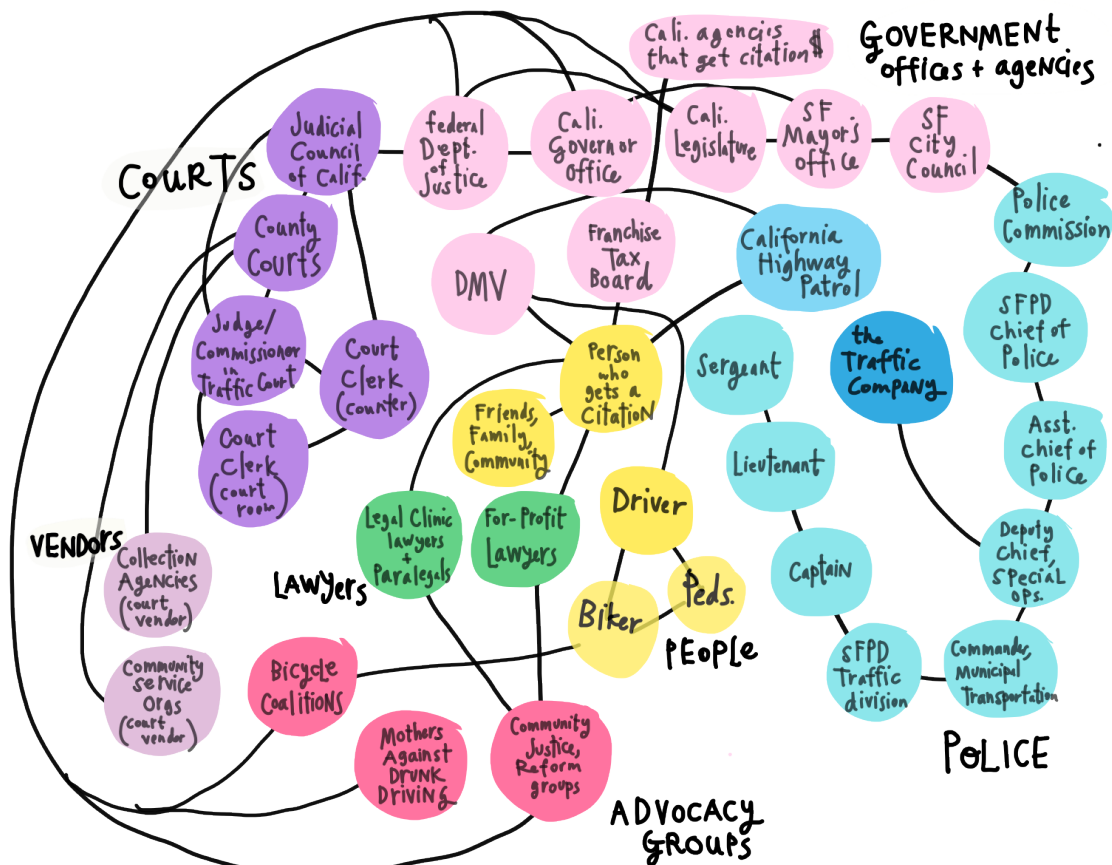 Cali. agencies
that get citation $
GOVERNMENT
offices + agencies
Judicial
Council
of Calif.
federal
Dept.
of
Justice
Cali.
Governor
Office
Cali.
Legislature
SF
Mayor's
Office
SF
City
Council
COURTS
Police
Commission
County
Courts
DMV
Franchise
Tax
Board
California
Highway
Patrol
SFPD
Chief of
Police
Judge/
Commissioner
in
Traffic Court
Court
Clerk
(counter)
Person
who
gets a
Citation
Sergeant
the
Traffic
Company
Friends,
Family,
Community
Court
Clerk
(court
room)
Lieutenant
Asst.
chief of
Police
VENDORS
Collection
Agencies
(court
vendor)
LAWYERS
Legal Clinic
lawyers
+
Paralegals
For-Profit
Lawyers
Driver
Captain
Deputy
Chief,
Special
ops.
Biker
Peds.
PEOPLE
Community
Service
Orgs
(court
vendor)
Bicycle
Coalitions
SFPD
Traffic
division
Commander,
Municipal
Transportation
Mothers
Against
DRUNK
DRIVING
Community
Justice,
Reform
groups
POLICE
ADVOCACY
GROUPS